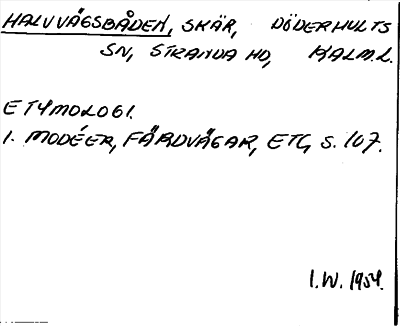 HALVVÄGSBÅDEN, SKÄR, DÖDERHULTS
SN, STRANDA HD, KALM.L.
ETYMOLOGI.
I. MODÉER, FÄRDVÄGAR, ETC, S. 107.
I.W. 1954.